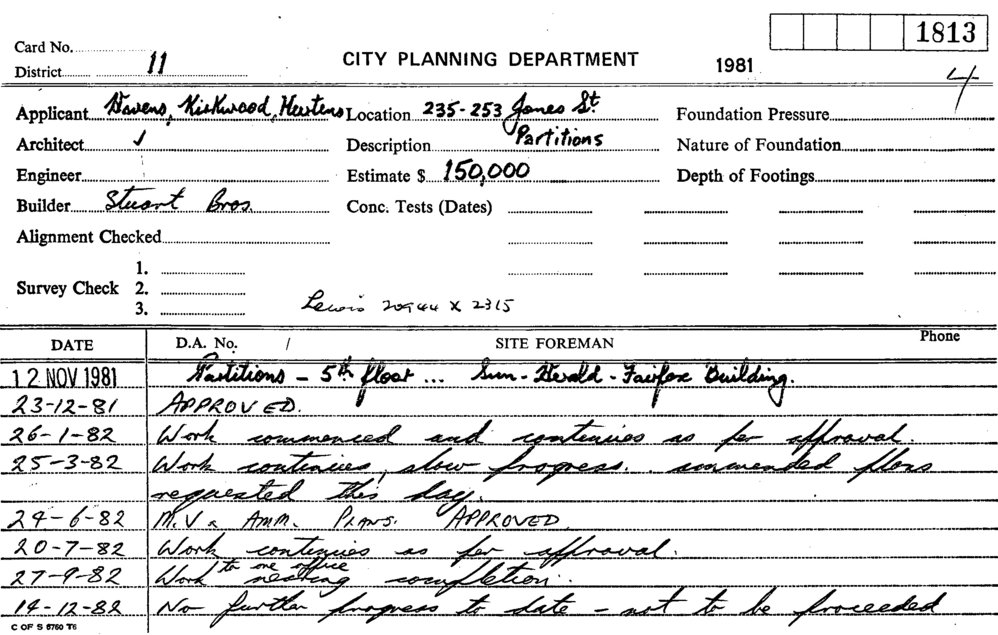 1813
Card No.
District 11
CITY PLANNING DEPARTMENT
1981
4
Applicant Havens, Kirkwood, Mertens Location 235-253 Jones St. Foundation Pressure
Architect ✓ Description Partitions Nature of Foundation
Engineer Estimate $ 150,000 Depth of Footings
Builder Stuart Bros. Conc. Tests (Dates)
Alignment Checked
1.
Survey Check 2.
3. Lewis 20944 x 2315
DATE D.A. No. / SITE FOREMAN Phone
12 NOV 1981 Partitions - 5th floor ... Sun-Herald-Fairfax Building.
23-12-81 APPROVED.
26-1-82 Work commenced and continues as per approval.
25-3-82 Work continues, slow progress. ammended plans
requested this day.
24-6-82 M.V. AMM. PLANS. APPROVED.
20-7-82 Work continues as per approval.
to one office
27-9-82 Work nearing completion.
14-12-82 No further progress to date - not to be proceeded
C OF S 6760 T6